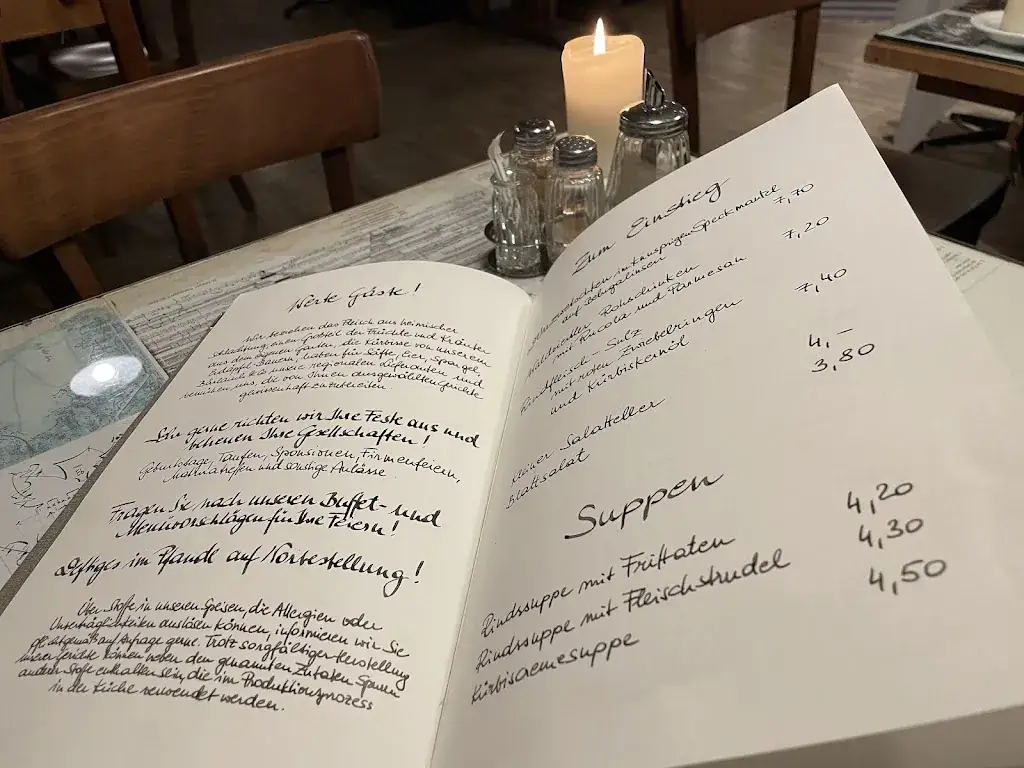 Werte Gäste!
Wir beziehen das Fleisch aus heimischer
Schlachtung, einen Großteil der Früchte und Kräuter
aus dem eigenen Garten, die Kürbisse von unseren
Bauern, haben für Säfte, Eier, Spargel,
unsere regionalen Lieferanten und
bemühen uns, die von Ihnen ausgewählten Gerichte
gewissenhaft zuzubereiten.
Sehr gerne richten wir Ihre Feste aus und
betreuen Ihre Gesellschaften!
Geburtstage, Taufen, Sponsionen, Firmenfeiern,
Maturatreffen und sonstige Anlässe.
Fragen Sie nach unseren Buffet- und
Menüvorschlägen für Ihre Feiern!
Deftiges im Pfandl auf Vorbestellung!
Über Stoffe in unseren Speisen, die Allergien oder
Unverträglichkeiten auslösen können, informieren wir Sie
pflichtgemäß auf Anfrage gerne. Trotz sorgfältiger Herstellung
unserer Gerichte können neben den genannten Zutaten Spuren
anderer Stoffe enthalten sein, die im Produktionsprozess
in der Küche verwendet werden.
Zum Einstieg
im knusprigen Speckmantel 7,70
auf Belugalinsen
Rohschinken 7,20
mit Rucola und Parmesan
Rindfleisch-Sulz 7,40
mit roten Zwiebelringen
und Kürbiskernöl
Kleiner Salatteller 4,-
Blattsalat 3,80
Suppen
Rindssuppe mit Frittaten 4,20
Rindssuppe mit Fleischstrudel 4,30
Kürbiscremesuppe 4,50